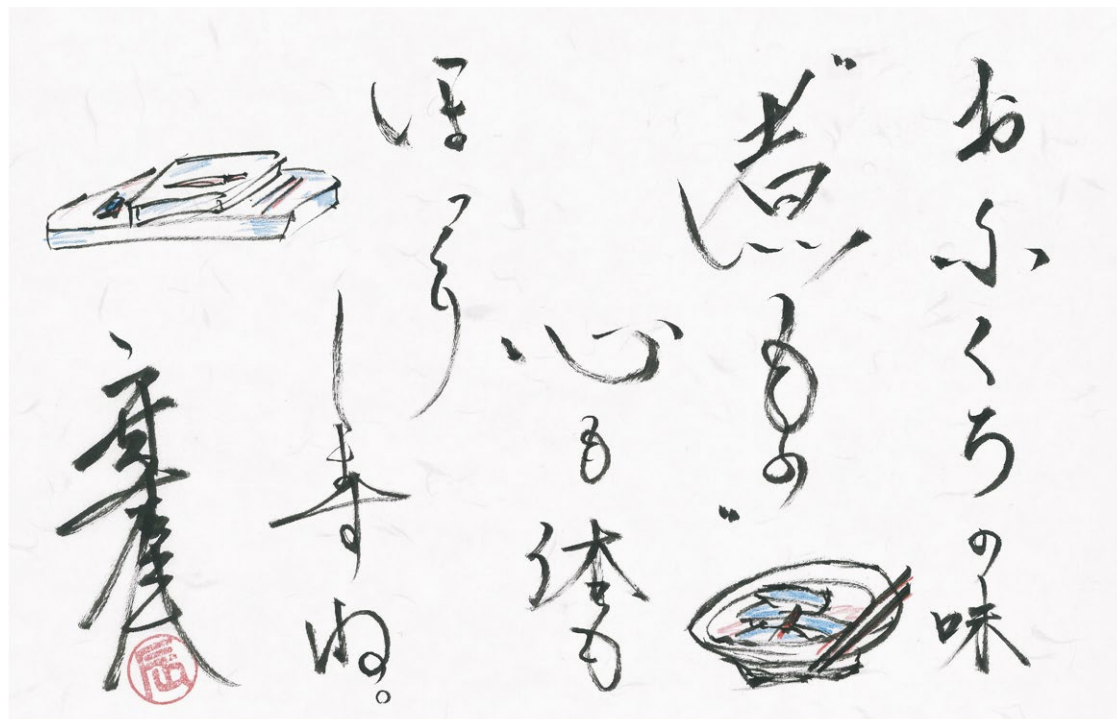 おふくろの味
〝煮もの〟
心も体も
ほっくり
しますね。